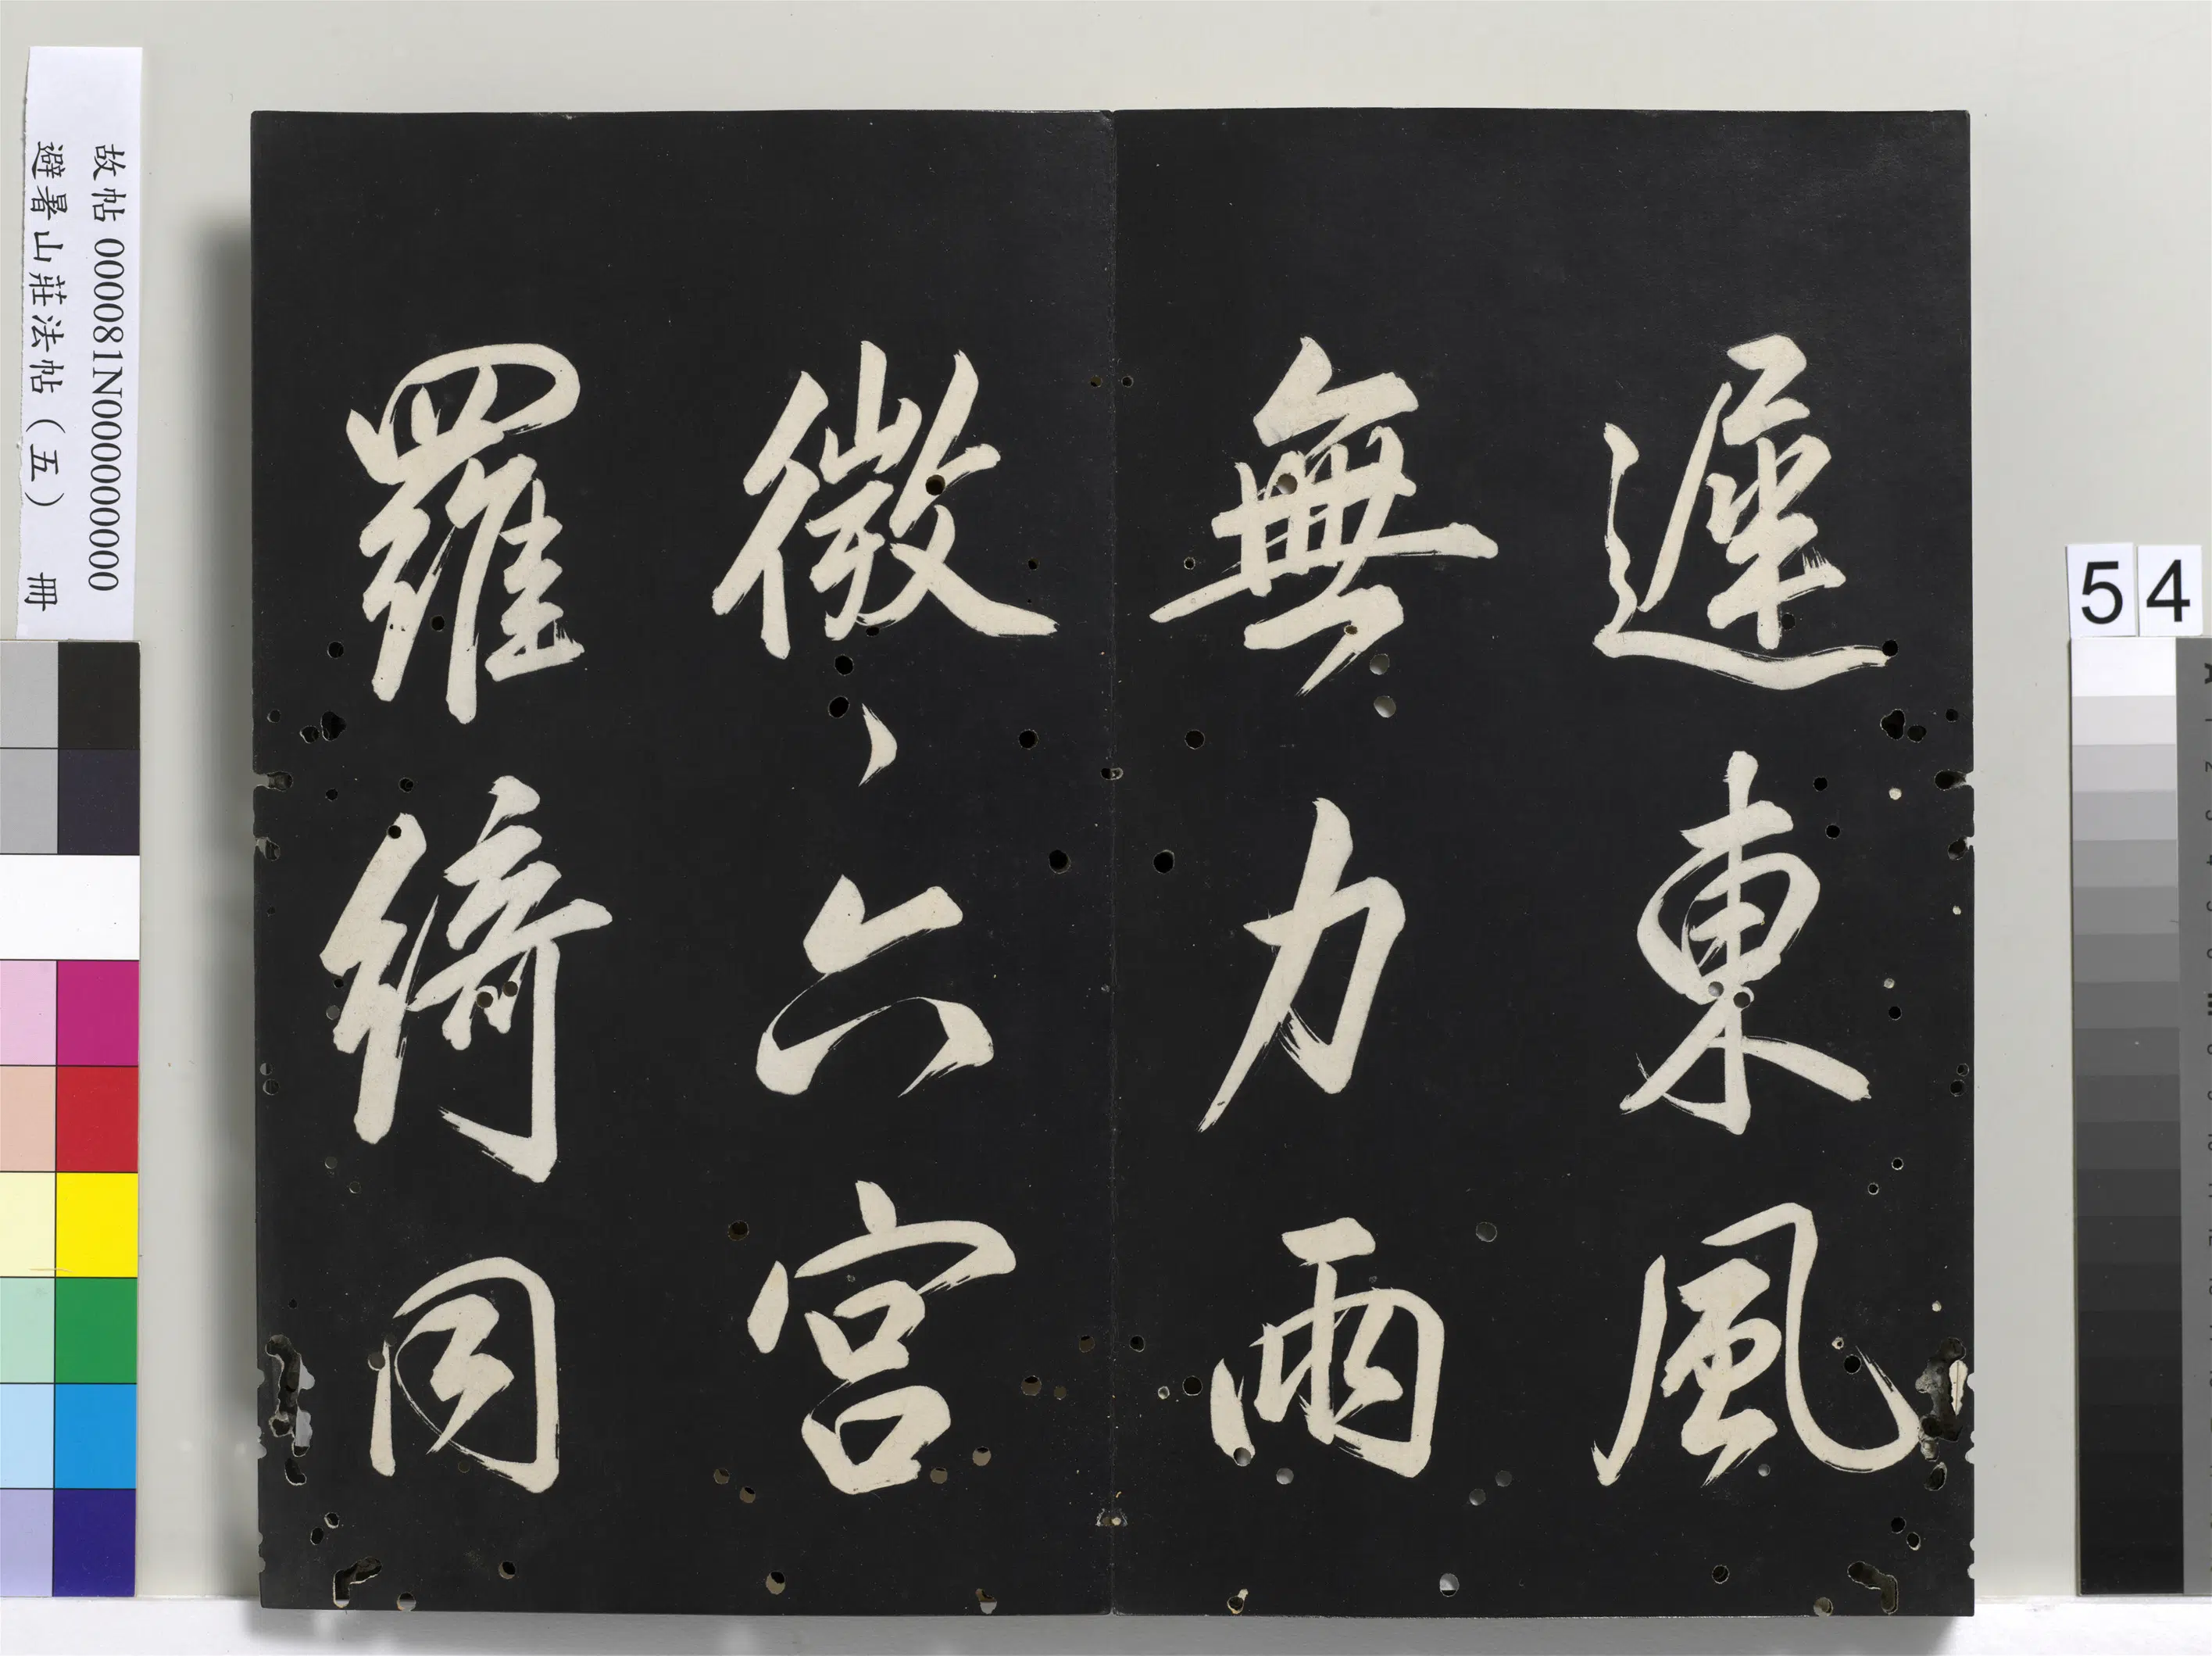 遲東風
無力雨
微〻六宮
羅綺同
故帖 000081N000000000
避暑山莊法帖（五） 冊
54